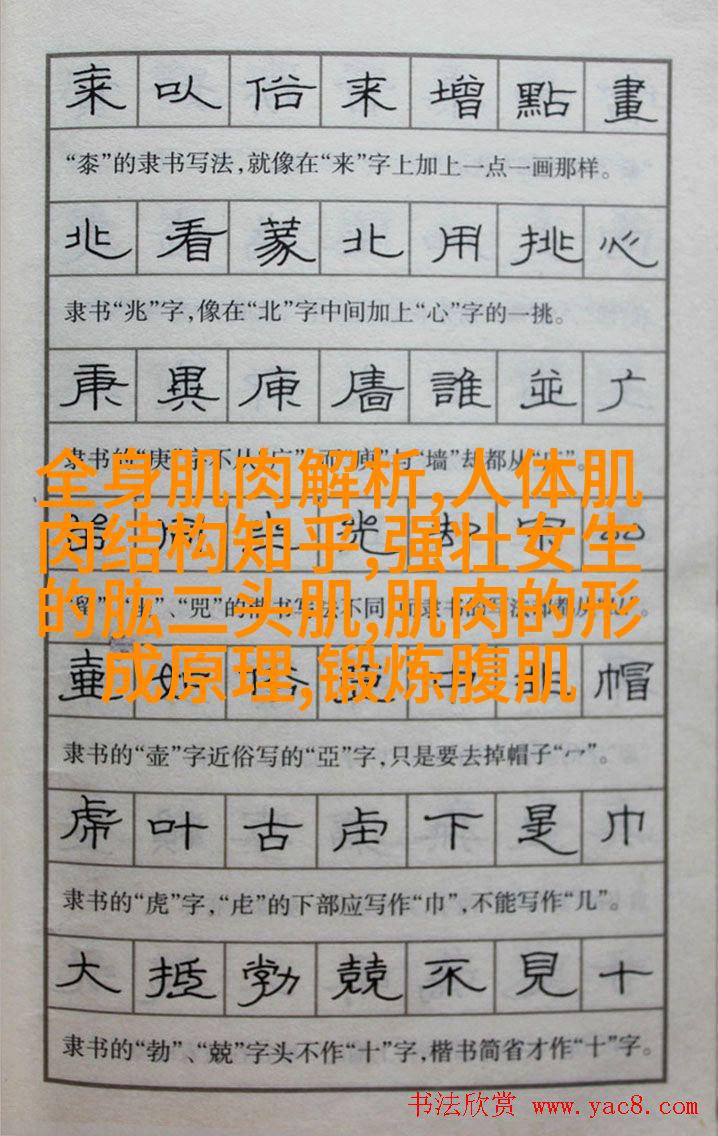 桼 以 俗 来 增 點 畫
“桼”的隶书写法,就像在“来”字上加上一点一画那样。
兆 看 蒙 北 用 挑 心
隶书“兆”字,像在“北”字中间加上“心”字的一挑。
庚 異 廧 誰 並 广
隶书的“庚”字不从“广”
与“墙”却都从
全身肌肉解析,人体肌
肉结构知乎,强壮女生
的肱二头肌,肌肉的形
成原理,锻炼腹肌
、“兕”的楷书写法不同,而隶书的写法却都从
帽
隶书的“壶”字近俗写的“亞”字,只是要去掉帽子“冖”。
虎 叶 古 虍 下 是 巾
隶书的“虎”字,“虍”的下部应写作“巾”,不能写作“几”。
大 抵 勃 兢 不 見 十
隶书的“勃”、“兢”字头不作“十”字,楷书简省才作“十”字。
书法欣赏 www.yac8.com